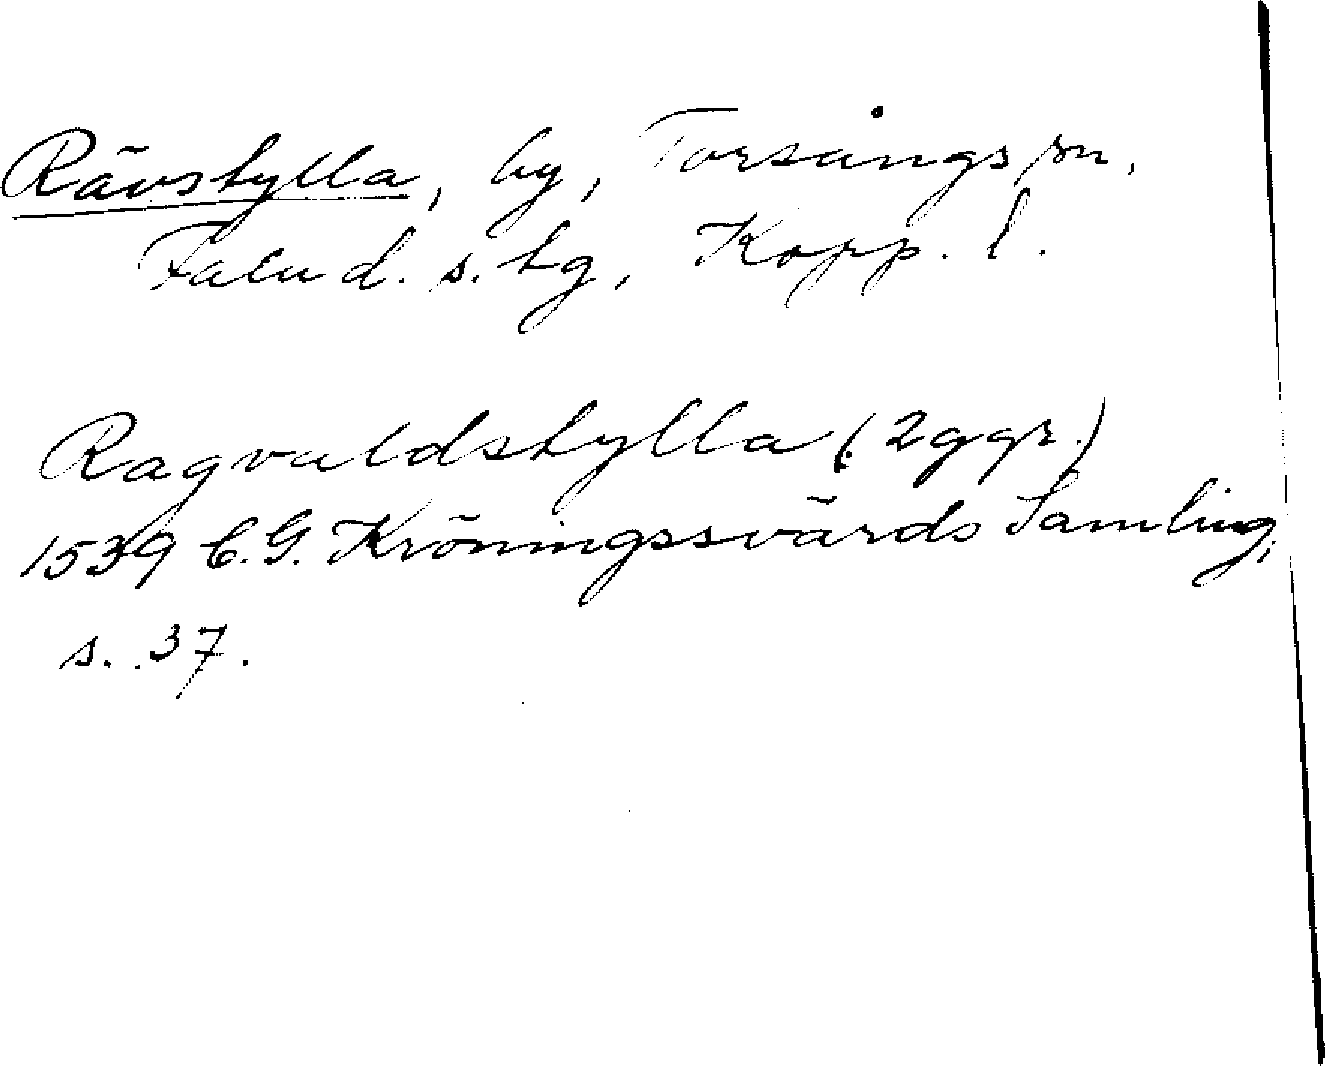 Rävstylla, by, Torsångs sn,
Falu d. s. tg, Kopp. l.
Ragvaldstylla (2 ggr.)
1539 C.G. Kröningssvärds Samling,
s. 37.